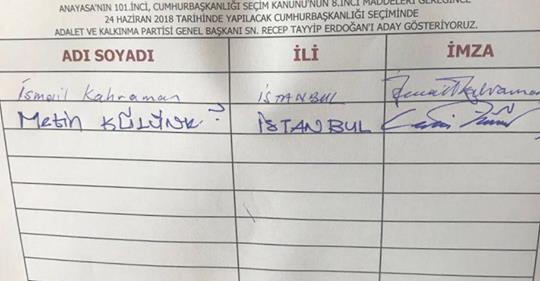 ANAYASA'NIN 101.İNCİ, CUMHURBAŞKANLIĞI SEÇİM KANUNU'NUN 8.İNCİ MADDELERİ GEREĞİNCE
24 HAZİRAN 2018 TARİHİNDE YAPILACAK CUMHURBAŞKANLIĞI SEÇİMİNDE
ADALET VE KALKINMA PARTİSİ GENEL BAŞKANI SN. RECEP TAYYİP ERDOĞAN'I ADAY GÖSTERİYORUZ.
ADI SOYADI İLİ İMZA
İsmail Kahraman İSTANBUL İsmail Kahraman
Metin KÜLÜNK ? İSTANBUL